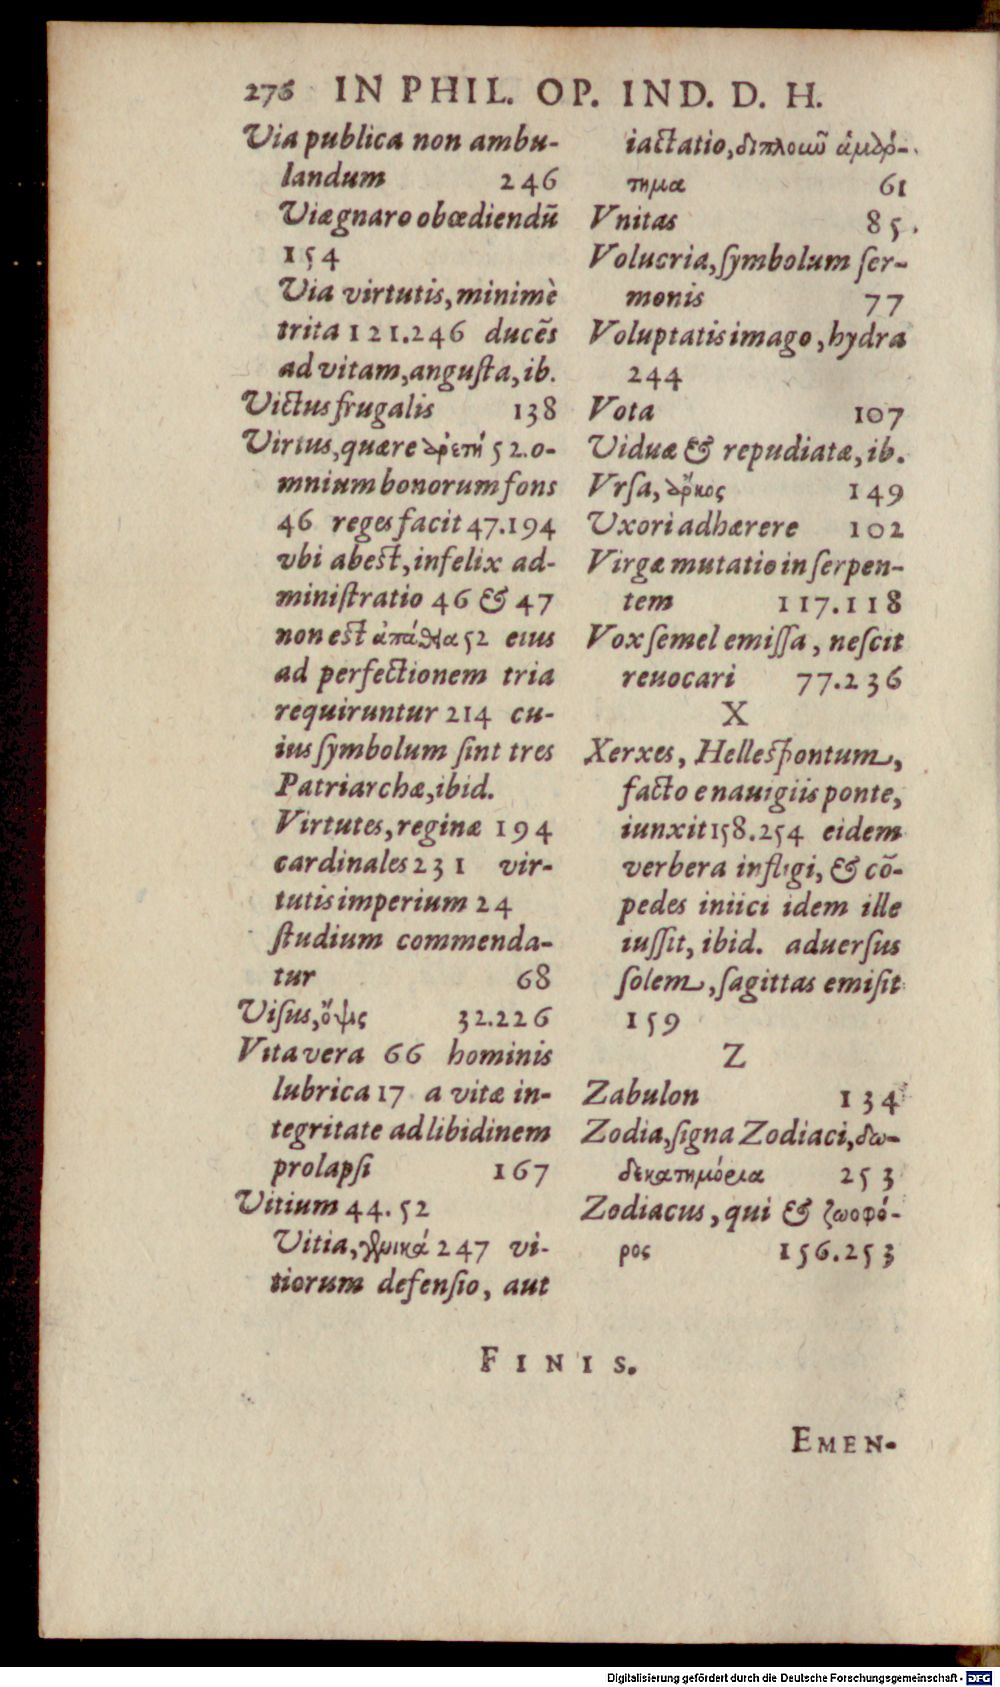 276 IN PHIL. OP. IND. D. H.
Via publica non ambu-
landum 246
Viæ gnaro obœdiendũ
154
Via virtutis, minimè
trita 121.246 ducẽs
ad vitam, angusta, ib.
Victus frugalis 138
Virtus, quære ἀρετή 52. o-
mnium bonorum fons
46 reges facit 47.194
vbi abest, infelix ad-
ministratio 46 & 47
non est ἀπάθεια 52 eius
ad perfectionem tria
requiruntur 214 cu-
ius symbolum sint tres
Patriarchæ, ibid.
Virtutes, reginæ 194
cardinales 231 vir-
tutis imperium 24
studium commenda-
tur 68
Visus, ὄψις 32.226
Vita vera 66 hominis
lubrica 17 a vitæ in-
tegritate ad libidinem
prolapsi 167
Vitium 44.52
Vitia, 247 vi-
tiorum defensio, aut
iactatio, διπλοιῶ ἁμάρ-
τημα 61
Vnitas 85.
Volucria, symbolum ser-
monis 77
Voluptatis imago, hydra
244
Vota 107
Viduæ & repudiatæ, ib.
Vrsa, ἄρκος 149
Vxori adhærere 102
Virgæ mutatio in serpen-
tem 117.118
Vox semel emissa, nescit
reuocari 77.236
X
Xerxes, Hellespontum,
facto e nauigiis ponte,
iunxit 158.254 eidem
verbera infligi, & cõ-
pedes iniici idem ille
iussit, ibid. aduersus
solem, sagittas emisit
159
Z
Zabulon 134
Zodia, signa Zodiaci, δω-
δεκατημόρια 253
Zodiacus, qui & ζωοφό-
ρος 156.253
FINIS.
EMEN-
Digitalisierung gefördert durch die Deutsche Forschungsgemeinschaft - DFG